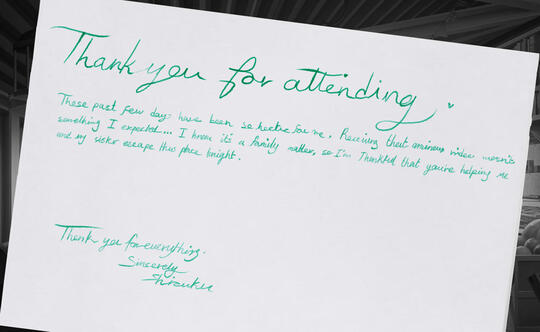 Thank you for attending
These past few days have been so hectic for me. Receiving that ominous video wasn't
something I expected.... I know it's a family matter, so I'm thankful that you're helping me
and my sister escape this place tonight.
Thank you for everything.
Sincerely
Shizuku